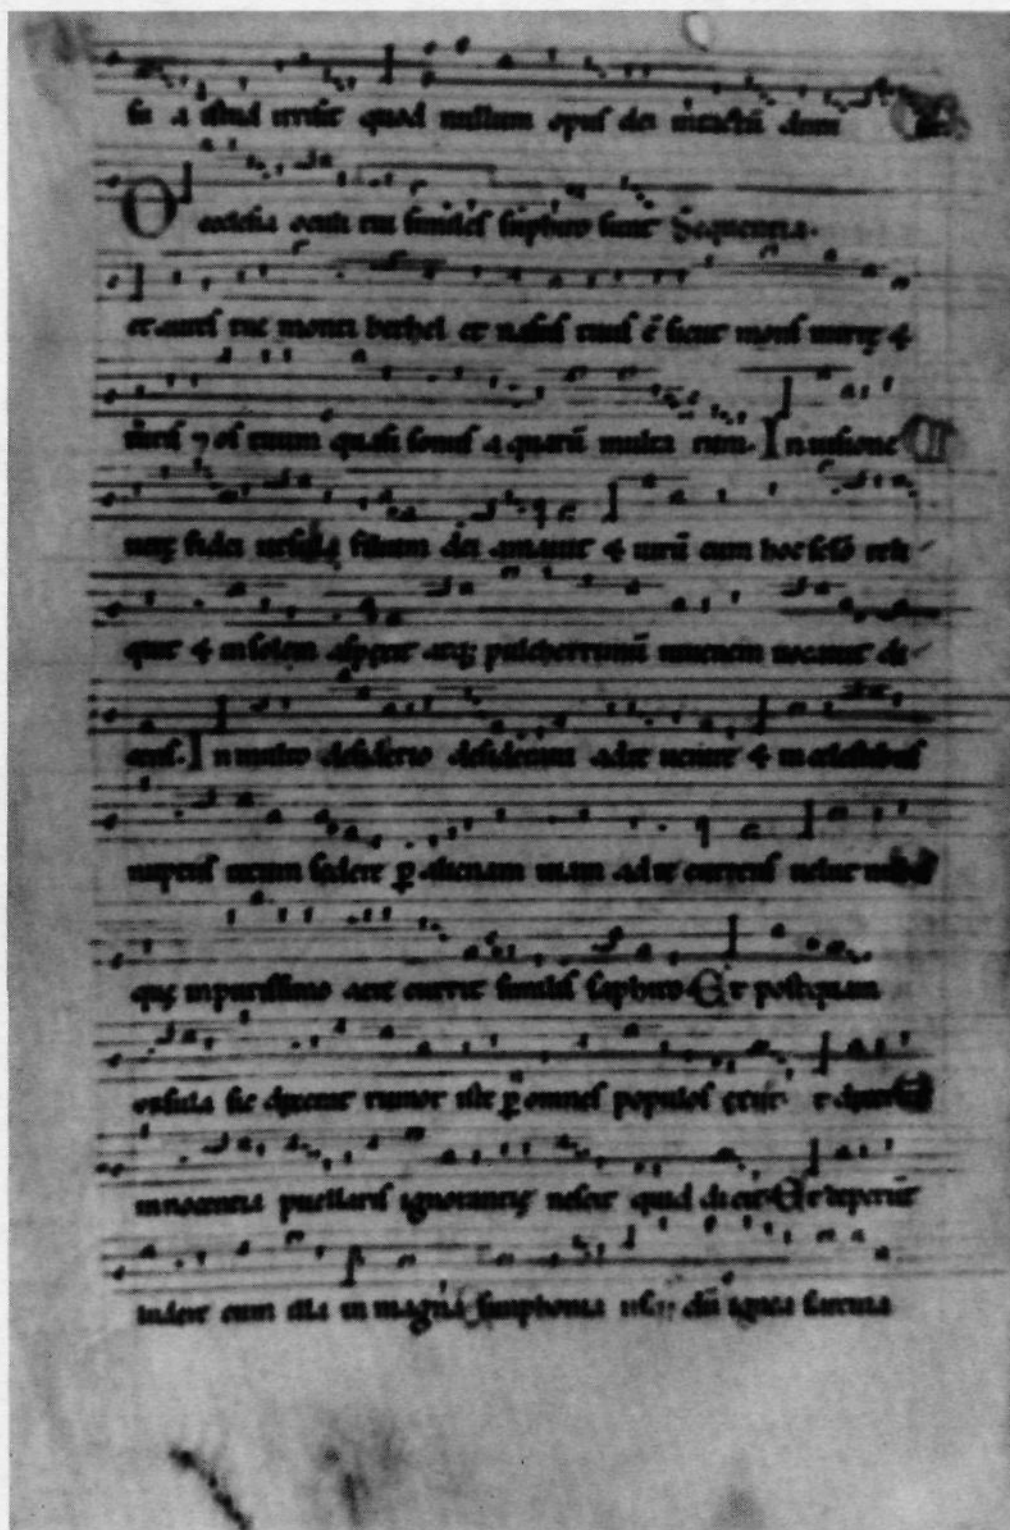 su a istud irrisit quod nullum opus dei intactū dimi
O ecclesia oculi tui similes saphiro sunt Sequentia.
et aures tue monti bethel et nasus tuus ē sicut mons mirrę &
turis ⁊ os tuum quasi sonus aquarū multarum. In uisione
uerę fidei ursula filium dei amauit & uirū cum hoc sclō reli
quit & in solem aspexit atq; pulcherrimū iuuenem uocauit di
cens. In multo desiderio desideraui ad te uenire & in celestibus
nuptiis tecum sedere ꝑ alienam uiam ad te currens uelut nubes
quę in purissimo aere currit similis saphiro. Et postquam
ursula sic dixerat rumor iste ꝑ omnes populos exiit et dixerūt
innocentia puellaris ignorantię nescit quid dicit. Et ceperūt
ludere cum illa in magna simphonia usq; dū ignea sarcina